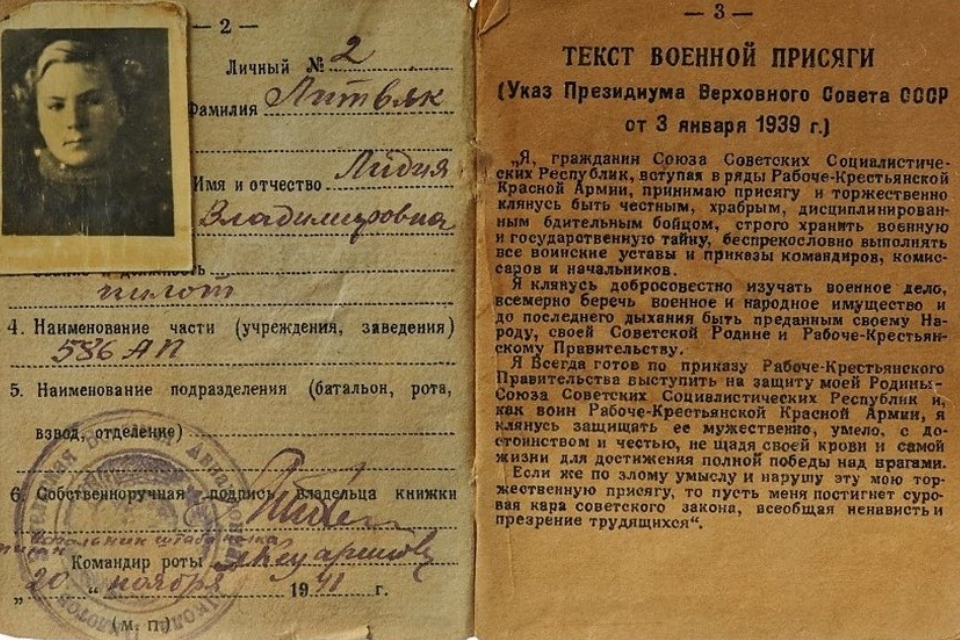 — 2 —
Личный № 2
Фамилия Литвяк
Имя и отчество Лидия
Владимировна
Звание и должность
пилот
4. Наименование части (учреждения, заведения)
586 АП
5. Наименование подразделения (батальон, рота,
взвод, отделение)
6. Собственноручная подпись владельца книжки
начальник штаба полка
Командир роты
„20 “ ноября 1941 г.
(м. п.)
— 3 —
ТЕКСТ ВОЕННОЙ ПРИСЯГИ
(Указ Президиума Верховного Совета СССР
от 3 января 1939 г.)
„Я, гражданин Союза Советских Социалистиче-
ских Республик, вступая в ряды Рабоче-Крестьянской
Красной Армии, принимаю присягу и торжественно
клянусь быть честным, храбрым, дисциплинирован-
ным бдительным бойцом, строго хранить военную
и государственную тайну, беспрекословно выполнять
все воинские уставы и приказы командиров, комис-
саров и начальников.
Я клянусь добросовестно изучать военное дело,
всемерно беречь военное и народное имущество и
до последнего дыхания быть преданным своему На-
роду, своей Советской Родине и Рабоче-Крестьян-
скому Правительству.
Я Всегда готов по приказу Рабоче-Крестьянского
Правительства выступить на защиту моей Родины-
Союза Советских Социалистических Республик и,
как воин Рабоче-Крестьянской Красной Армии, я
клянусь защищать ее мужественно, умело, с до-
стоинством и честью, не щадя своей крови и самой
жизни для достижения полной победы над врагами.
Если же по злому умыслу я нарушу эту мою тор-
жественную присягу, то пусть меня постигнет суро-
вая кара советского закона, всеобщая ненависть и
презрение трудящихся“.